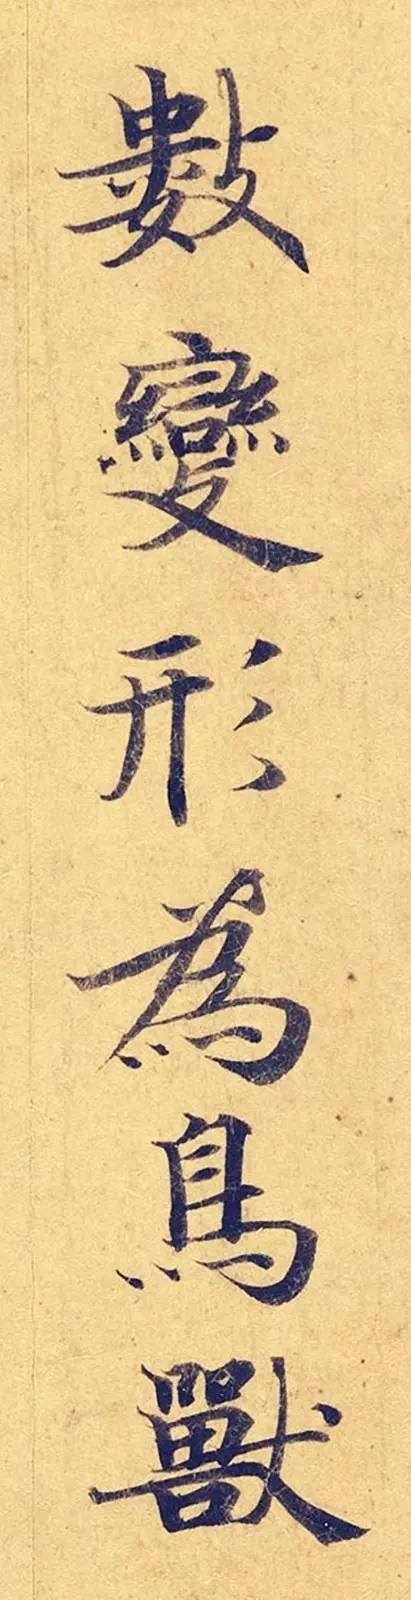 數變形為鳥獸